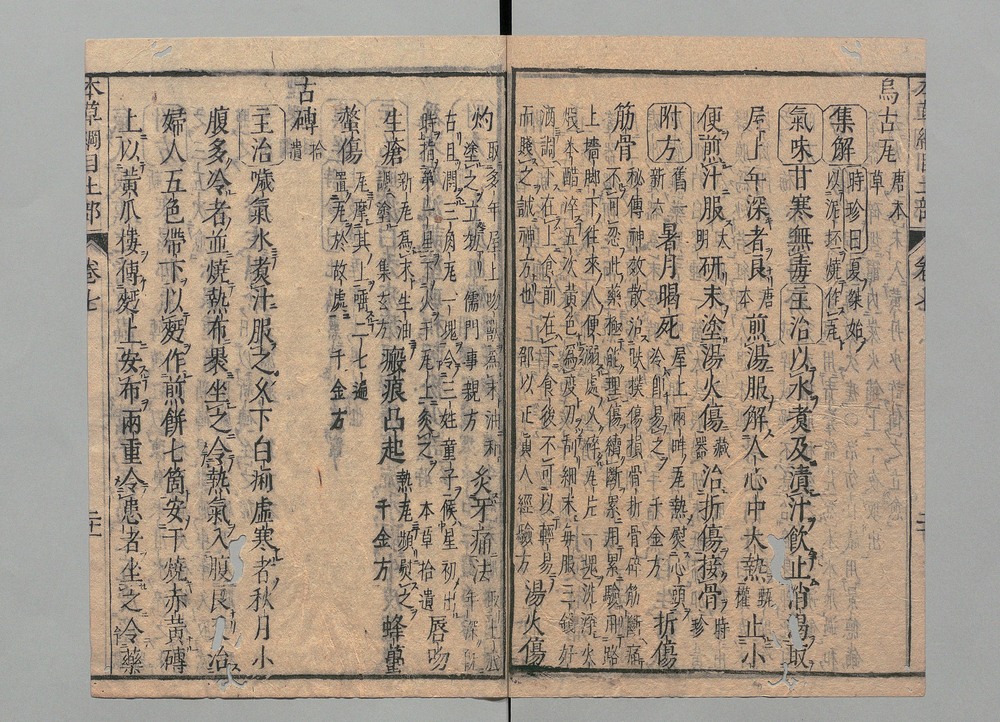 烏古瓦 唐本草
集解 時珍曰夏桀始以泥坯燒作瓦
氣味甘寒無毒主治以水煮及漬汁飲止消渴取
屋上年深者良 唐本 煎湯服解人心中大熱 甄權 止小
便煎汁服 大明 研末塗湯火傷 藏器 治折傷接骨 時珍
附方 舊 新六 暑月暍死 屋上兩畔瓦熱熨心頭冷即易之 千金方 折傷
筋骨 秘傳神效散治跌撲傷損骨折骨碎筋斷痛不可忍此藥極能理傷續斷累用累驗用路
上墻脚下往來人便溺處久碎瓦片一塊洗淨火煅米醋淬五次黃色為度刀刮細末每服三錢好
酒調下在上食前在下食後不可以輕易而賤之誠神方也 邵以正真人經驗方 湯火傷
灼 取多年屋上吻獸為末油和塗之立效 儒門事親方 灸牙痛法 取土底年深
既古且潤三角瓦一塊令三姓童子候星初出時指第一星下火于瓦上灸之 本草拾遺 唇吻
生瘡 新瓦為末生油調塗 集玄方 瘢痕凸起 熱瓦頻熨之 千金方 蜂蠆
螫傷 瓦摩其上唾二七遍置瓦於故處 千金方
古磚 拾遺
主治噦氣水煮汁服之久下白痢虛寒者秋月小
腹多冷者並燒熱布裹坐之令熱氣入腹良又治
婦人五色帶下以麫作煎餅七箇安于燒赤黃磚
上以黃瓜樓傅麫上安布兩重令患者坐之令藥
本草綱目土部 卷七